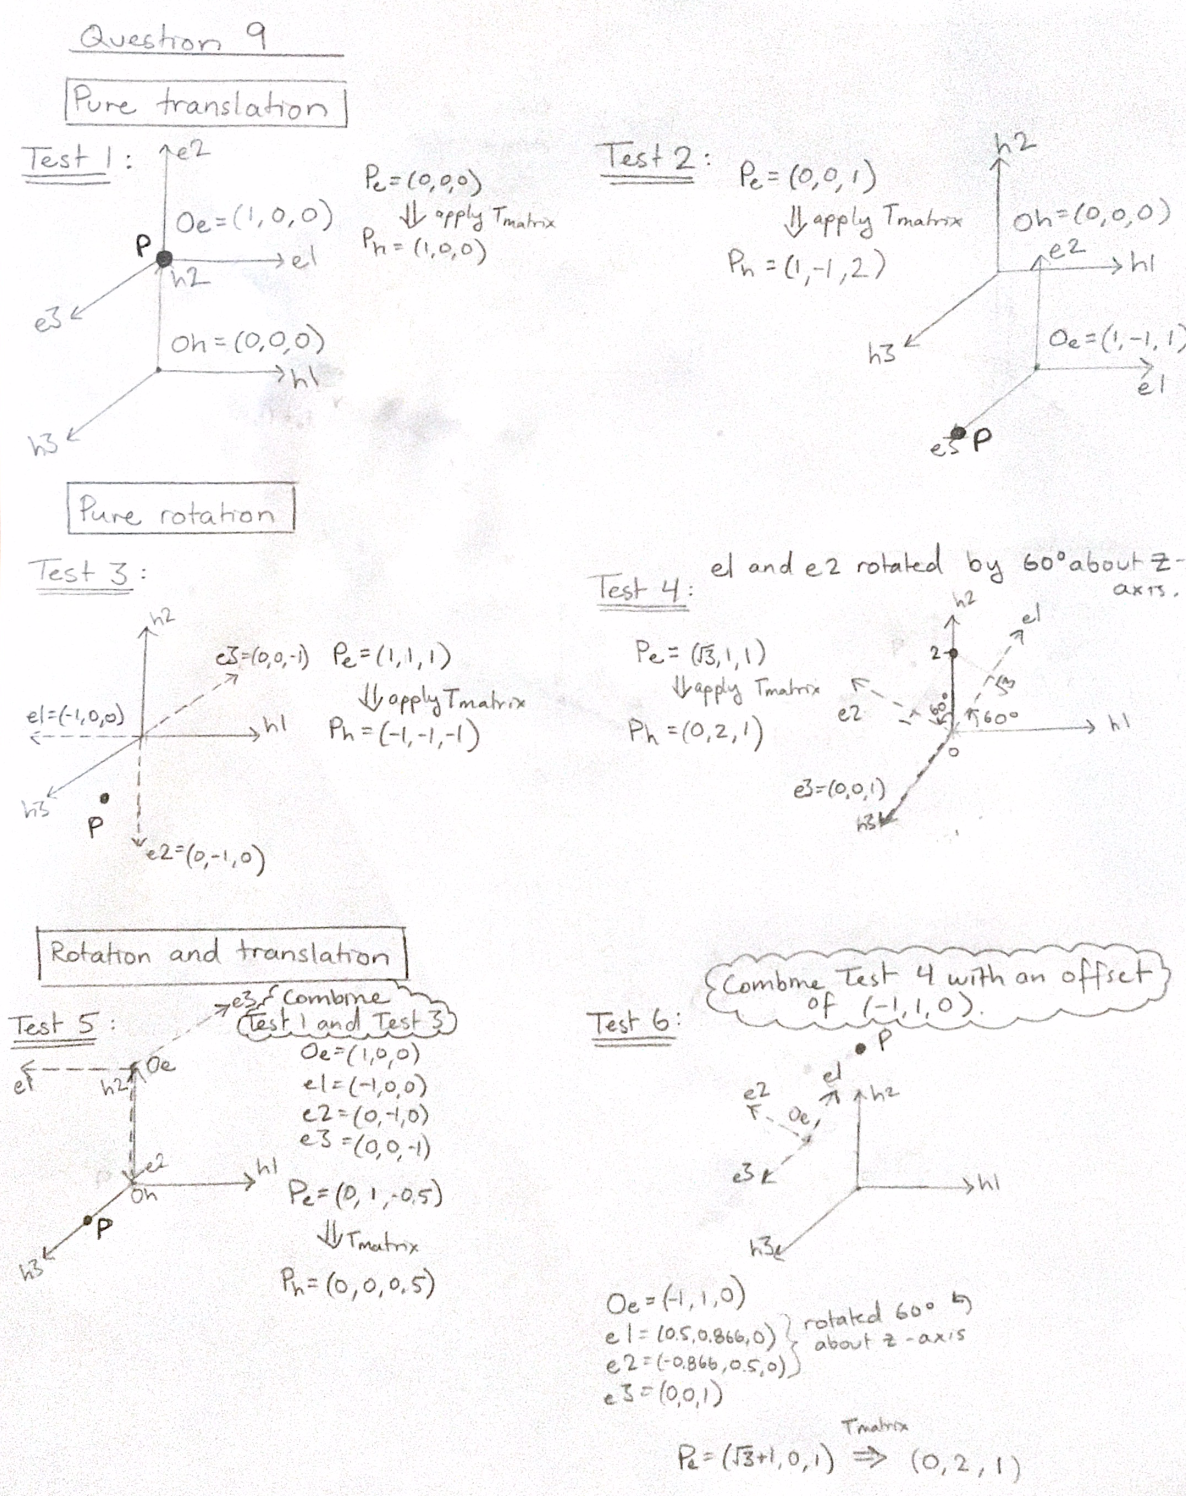 Question 9
Pure translation
Test 1:
e2
Oe=(1,0,0)
P
e1
h2
e3
Oh=(0,0,0)
h1
h3
Pe=(0,0,0)
⇓ apply Tmatrix
Ph=(1,0,0)
Test 2:
Pe=(0,0,1)
⇓ apply Tmatrix
Ph=(1,-1,2)
h2
Oh=(0,0,0)
e2
h1
h3
Oe=(1,-1,1)
e1
e3 P
Pure rotation
Test 3:
h2
e3=(0,0,-1)
e1=(-1,0,0)
h1
h3
P
e2=(0,-1,0)
Pe=(1,1,1)
⇓ apply Tmatrix
Ph=(-1,-1,-1)
Test 4:
e1 and e2 rotated by 60° about z-
axis.
Pe=(√3,1,1)
⇓ apply Tmatrix
Ph=(0,2,1)
h2
e1
2
√3
e2
60°
60°
h1
0
e3=(0,0,1)
h3
Rotation and translation
Test 5:
e3
Combine
Test 1 and Test 3
e1
h2
Oe
e2
Oh
h1
P
h3
Oe=(1,0,0)
e1=(-1,0,0)
e2=(0,-1,0)
e3=(0,0,-1)
Pe=(0,1,-0.5)
⇓ Tmatrix
Ph=(0,0,0.5)
Combine Test 4 with an offset
of (-1,1,0).
Test 6:
P
e1
e2
h2
Oe
e3
h1
h3
Oe=(-1,1,0)
e1=(0.5,0.866,0)
e2=(-0.866,0.5,0)
rotated 60° ↰
about z-axis
e3=(0,0,1)
Tmatrix
Pe=(√3+1,0,1) ⇒ (0,2,1)